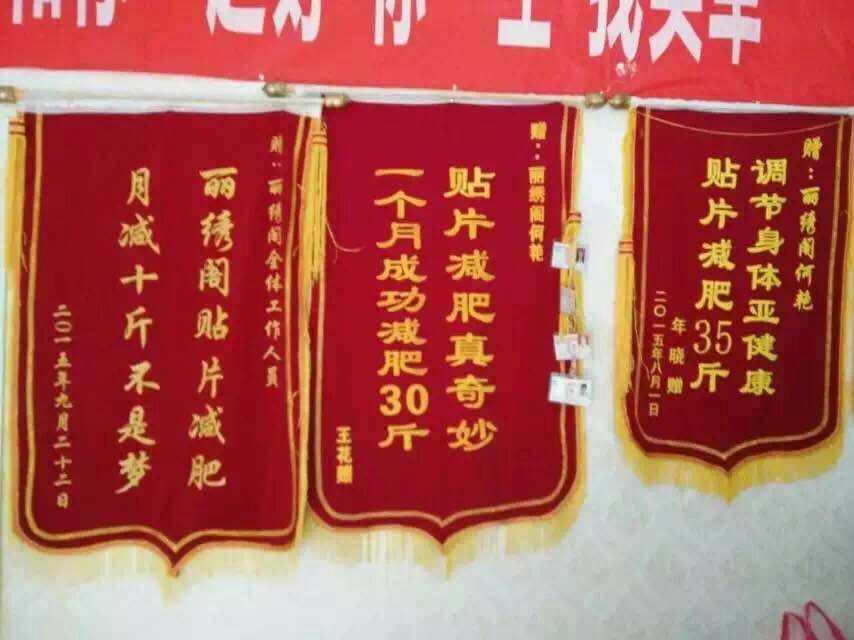 你 工 找 关
赠：丽绣阁全体工作人员
丽绣阁贴片减肥
月减十斤不是梦
二〇一五年九月二十二日
赠：丽绣阁何艳
贴片减肥真奇妙
一个月成功减肥30斤
王花赠
赠：丽绣阁何艳
调节身体亚健康
贴片减肥35斤
年晓赠
二〇一五年八月一日